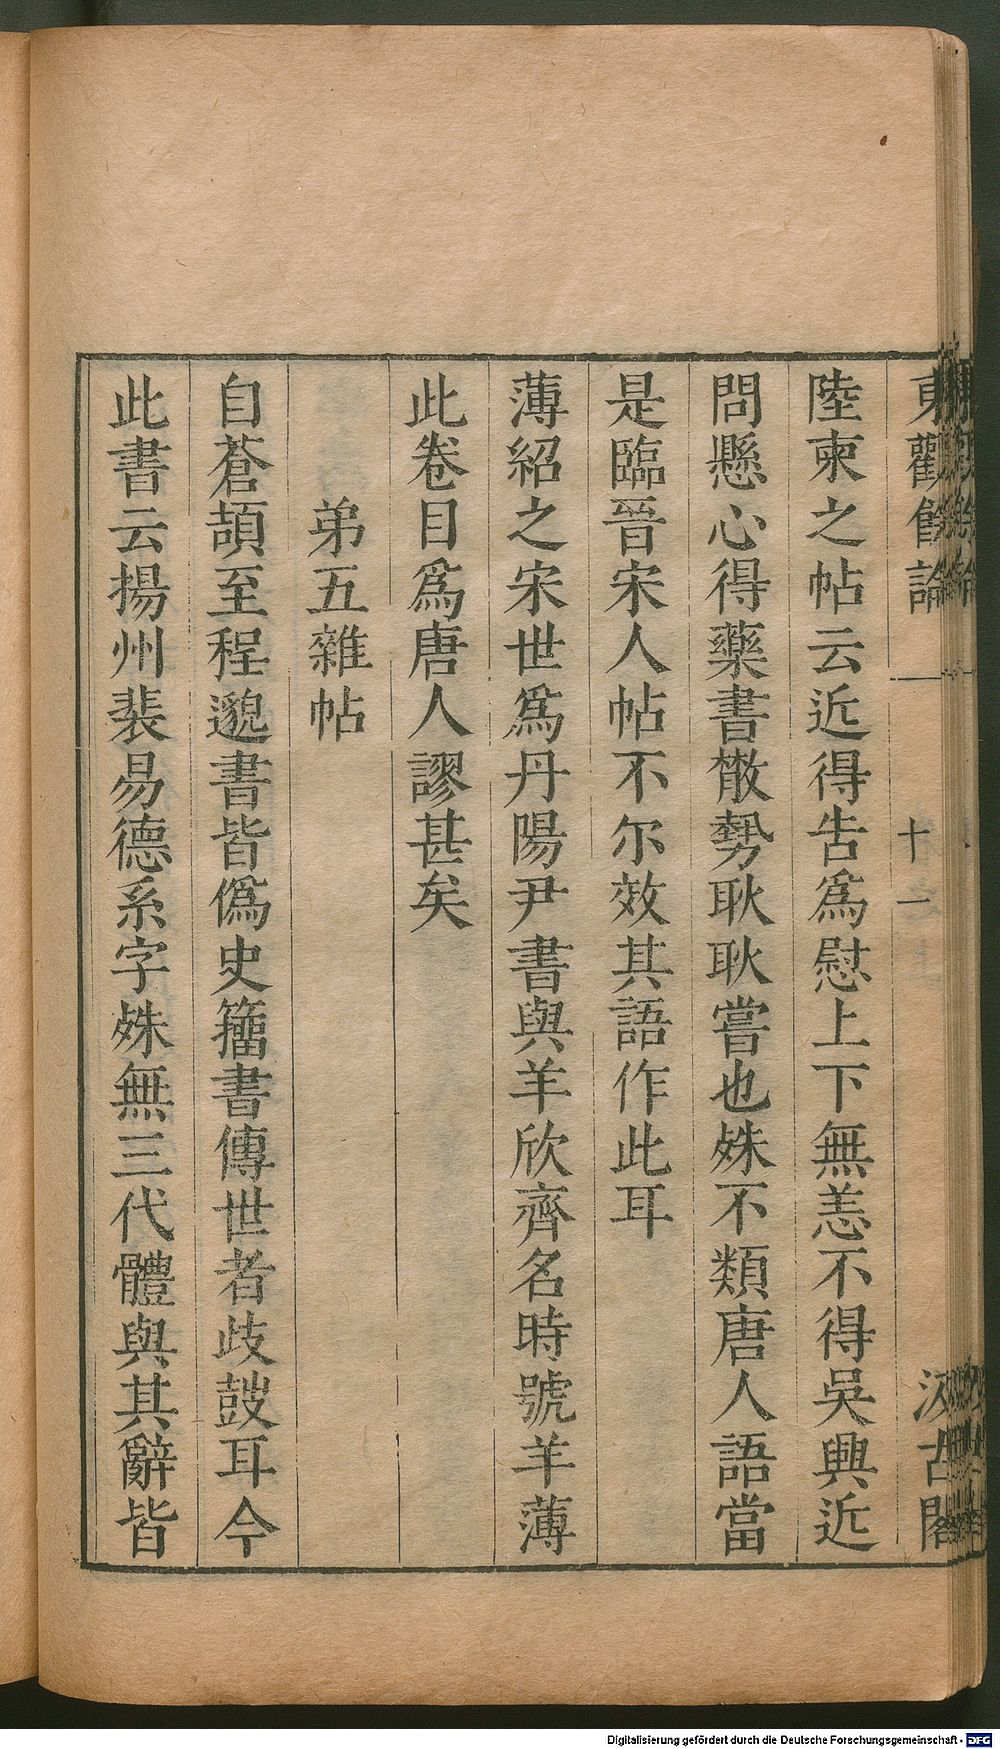 東觀餘論 一 十一 汲古閣
陸柬之帖云近得告爲慰上下無恙不得吳興近
問懸心得藥書散勢耿耿嘗也姝不類唐人語當
是臨晉宋人帖不尓效其語作此耳
薄紹之宋世爲丹陽尹書與羊欣齊名時號羊薄
此卷目爲唐人謬甚矣
弟五雜帖
自蒼頡至程邈書皆僞史籀書傳世者歧鼓耳今
此書云揚州裴易德系字姝無三代體與其辭皆
Digitalisierung gefördert durch die Deutsche Forschungsgemeinschaft - DFG